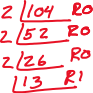 2 104 R0
2 52 R0
2 26 R0
13 R1